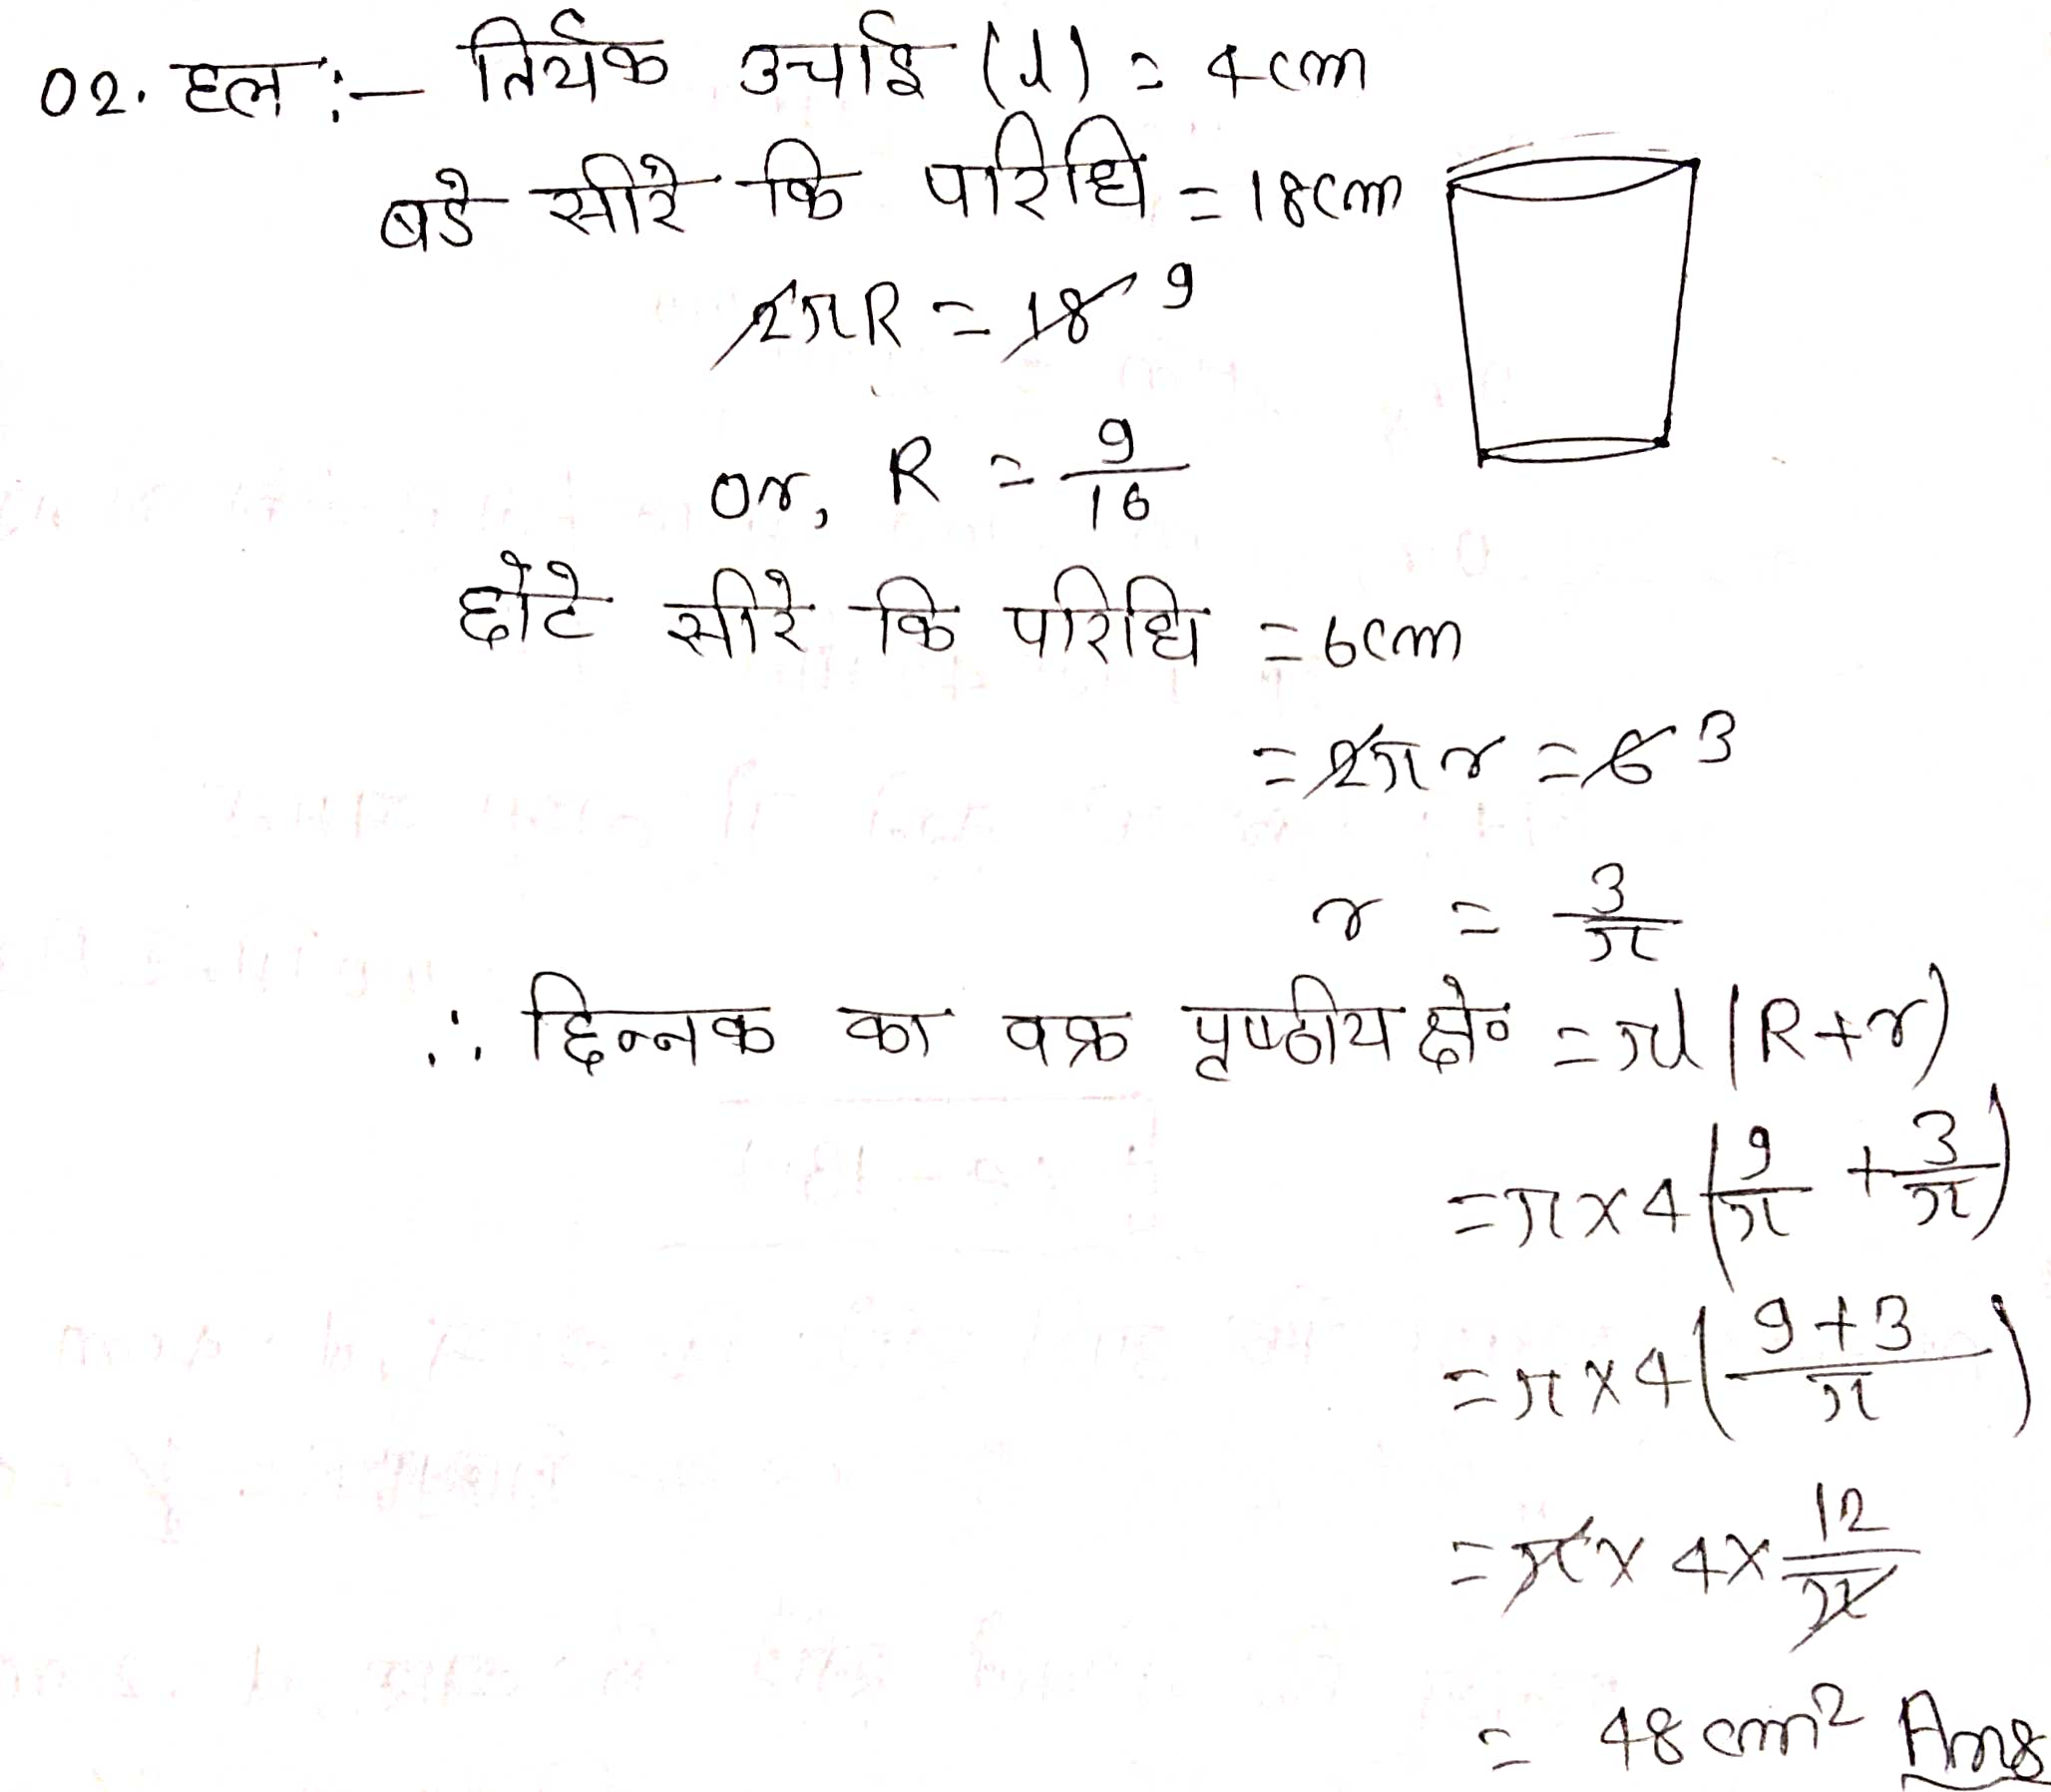 02. हल :- तिर्यक उचाई (l) = 4cm
बडे सीरे कि परिधि = 18cm
2πR = 18 9
or, R = 9/16
छोटे सीरे कि परिधि = 6cm
= 2πr = 6 3
r = 3/π
∴ छिन्नक का वक्र पृष्ठीय क्षे० = πl (R+r)
= π×4 (9/π + 3/π)
= π×4 (9+3/π)
= π× 4× 12/π
= 48 cm² Ans